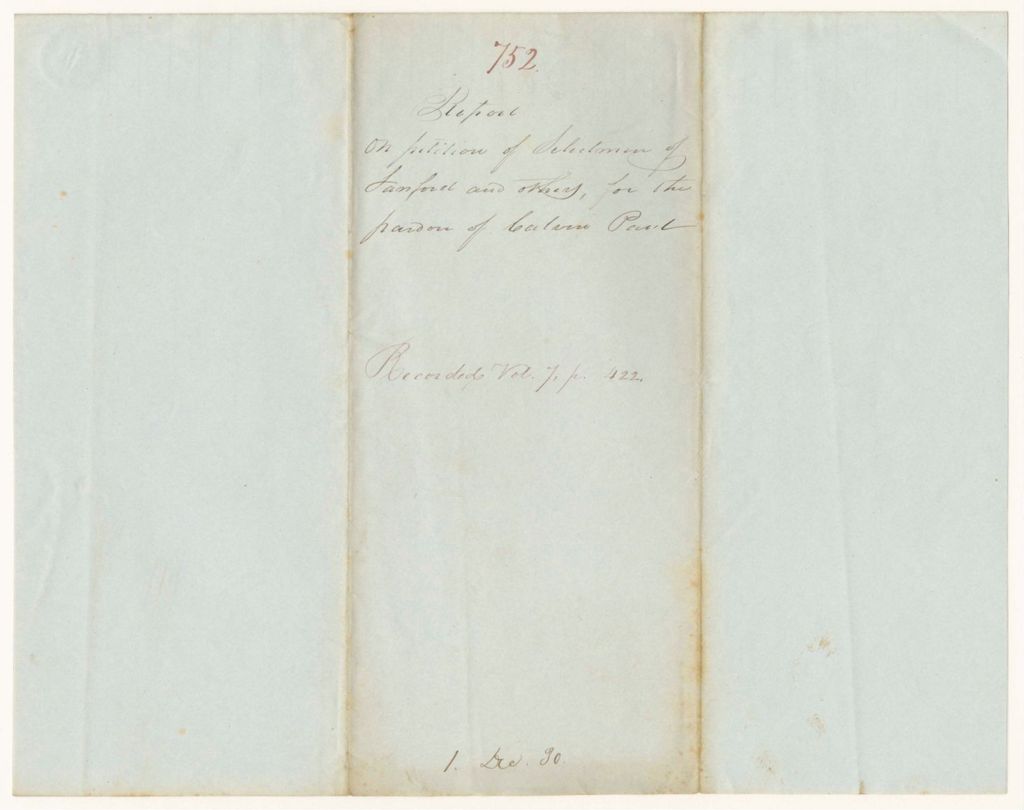 752.
Report
On petition of Selectmen of
Sanford and others, for the
pardon of Calvin Paul
Recorded Vol. 7, p. 422.
1. Dec. 30.